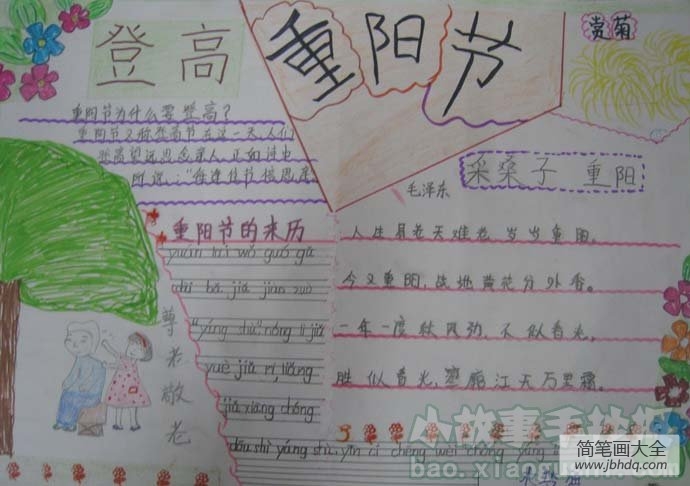 登高
重阳节
赏菊
重阳节为什么要登高？
重阳节又称登高节在这一天,人们
登高望远思念亲人,正如诗中
所说："每逢佳节倍思亲
采桑子 重阳
毛泽东
人生易老天难老,岁岁重阳。
今又重阳,战地黄花分外香。
一年一度秋风劲,不似春光,
胜似春光,寥廓江天万里霜。
重阳节的来历
yuán lái wǒ guó gǔ
"yáng shù" nóng lì jiǔ
yuè jiǔ rì, liǎng
jiǔ xiāng chóng
dōu shì yáng shù, yīn cǐ chēng wéi chóng yáng
尊老敬老
小故事手抄报
bao.xiaogushi.com
简笔画大全
www.jbhdq.com